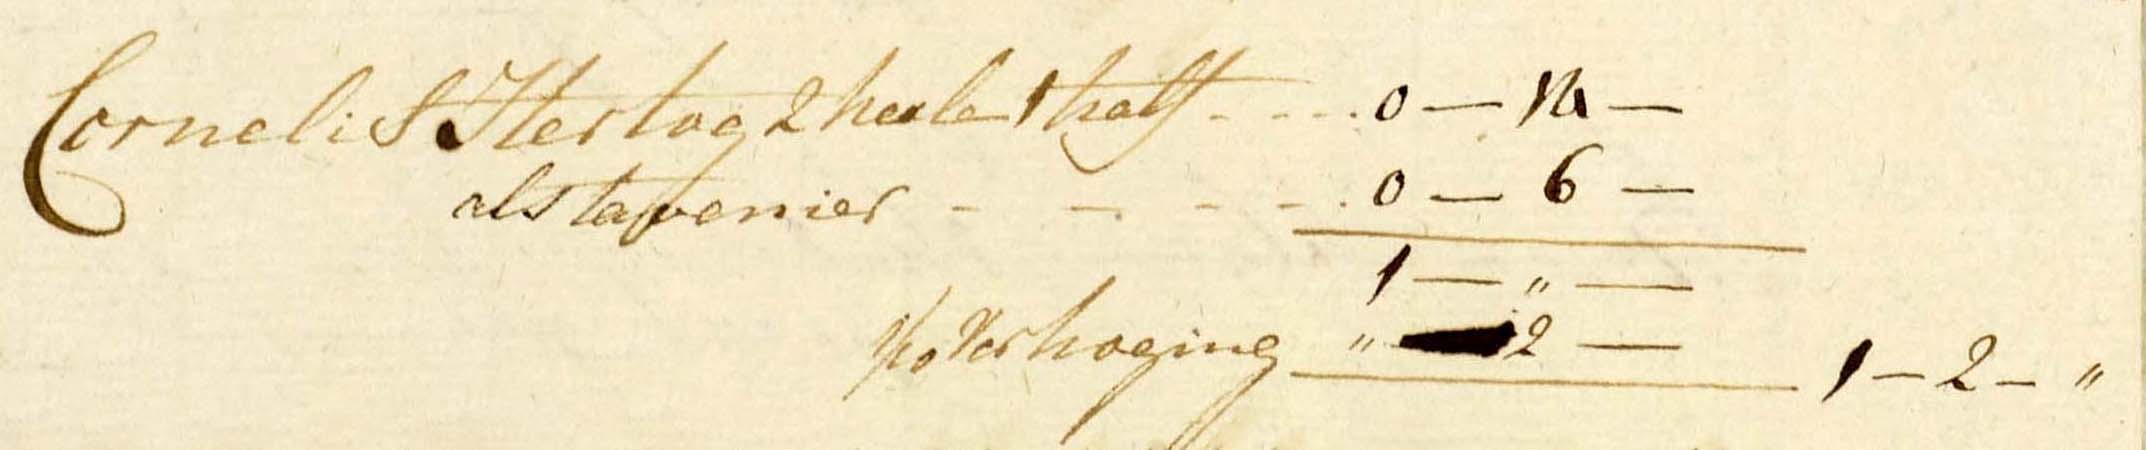 Cornelis Hertog 2 heele 1 half - - - - 0 — 14 —
als tapenier - - - - 0 — 6 —
1 — „ —
1/10 Verhoging „ 2 — 1 — 2 — „